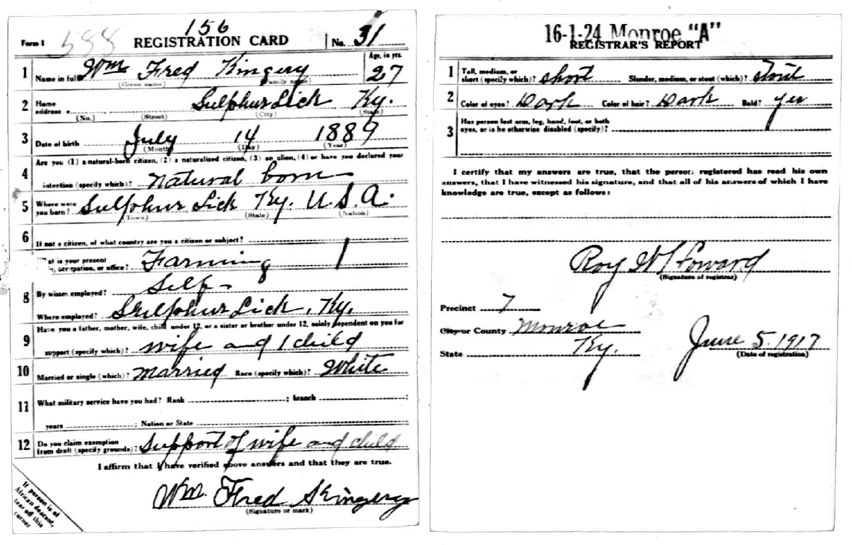 588
156
Form 1 REGISTRATION CARD No. 31
1 Name in full Wm Fred Kingery Age, in yrs. 27
(Given name) (Family name)
2 Home address Sulphur Lick Ky.
(No.) (Street) (City) (State)
3 Date of birth July 14 1889
(Month) (Day) (Year)
Are you (1) a natural-born citizen, (2) a naturalized citizen, (3) an alien, (4) or have you declared your
4 intention (specify which)? Natural born
5 Where were you born? Sulphur Lick Ky. U.S.A.
(Town) (State) (Nation)
6 If not a citizen, of what country are you a citizen or subject?
What is your present
occupation, or office? Farming 1
8 By whom employed? Self
Where employed? Sulphur Lick, Ky.
9 Have you a father, mother, wife, child under 12, or a sister or brother under 12, solely dependent on you for
support (specify which)? wife and 1 child
10 Married or single (which)? Married Race (specify which)? White
11 What military service have you had? Rank ; branch
years ; Nation or State
12 Do you claim exemption from draft (specify grounds)? Support of wife and child
I affirm that I have verified above answers and that they are true.
Wm. Fred Kingery
(Signature or mark)
If person is of African descent, tear off this corner
16-1-24 Monroe "A"
REGISTRAR'S REPORT
1 Tall, medium, or short (specify which)? Short Slender, medium, or stout (which)? Stout
2 Color of eyes? Dark Color of hair? Dark Bald? yes
3 Has person lost arm, leg, hand, foot, or both eyes, or is he otherwise disabled (specify)?
I certify that my answers are true, that the person registered has read his own
answers, that I have witnessed his signature, and that all of his answers of which I have
knowledge are true, except as follows:
Roy
(Signature of registrar)
Precinct 7
City or County Monroe
State Ky.
June 5. 1917
(Date of registration)